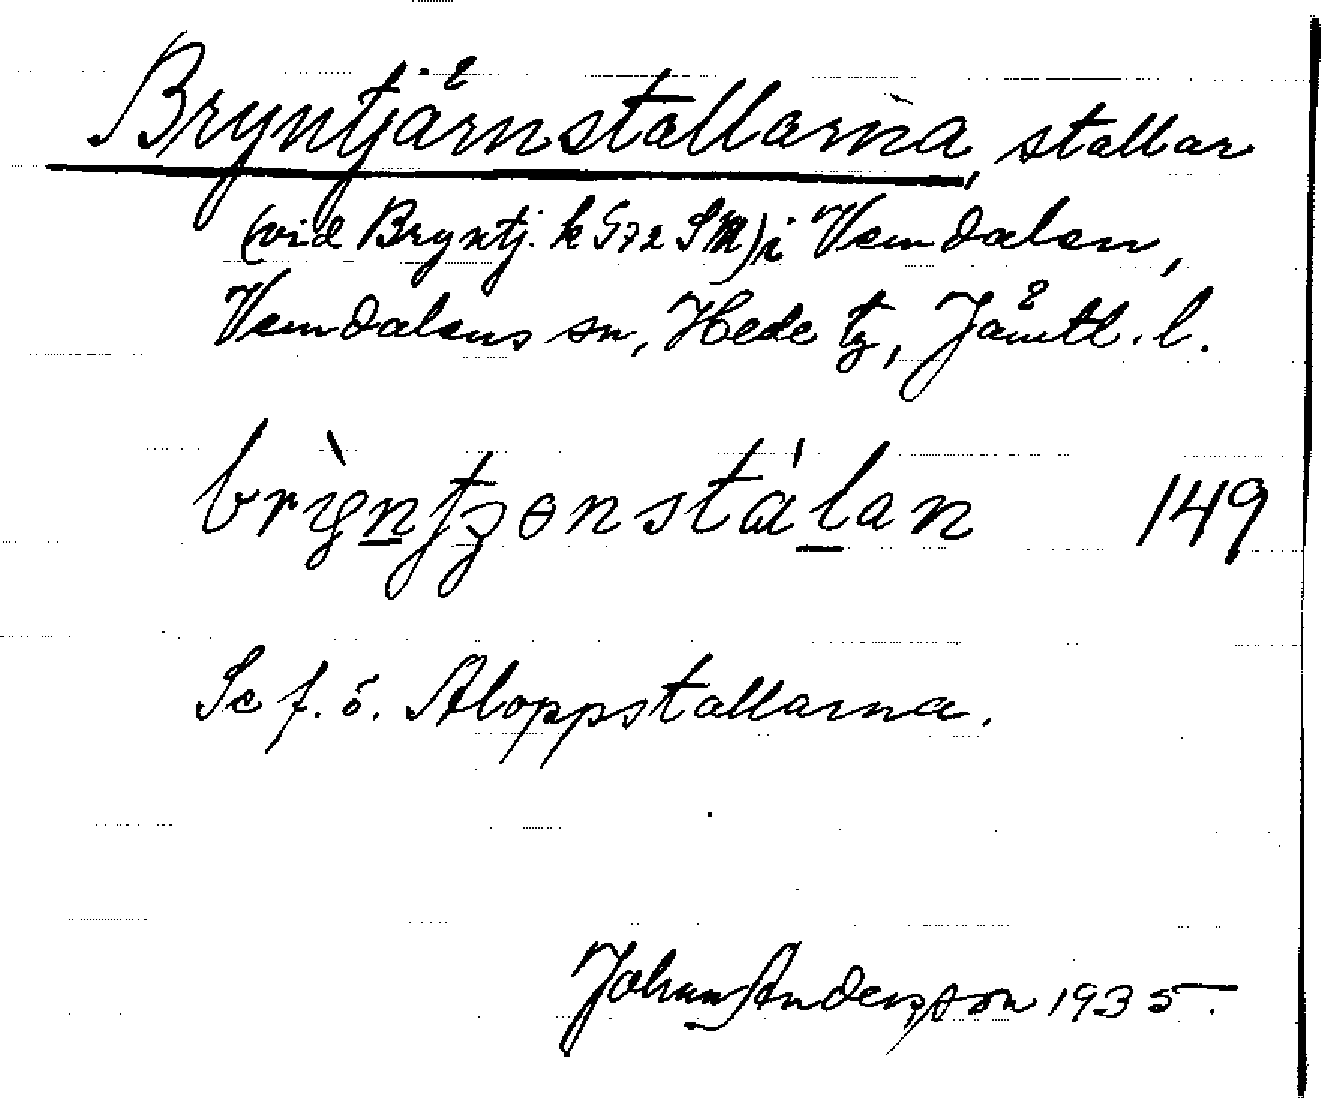 Bryntjärnstallarna, stallar
(vid Bryntj. k 572 SM) i Vemdalen,
Vemdalens sn, Hede tg, Jämtl. l.
149
Se f. ö. Aloppstallarna.
Johan Andersson 1935.